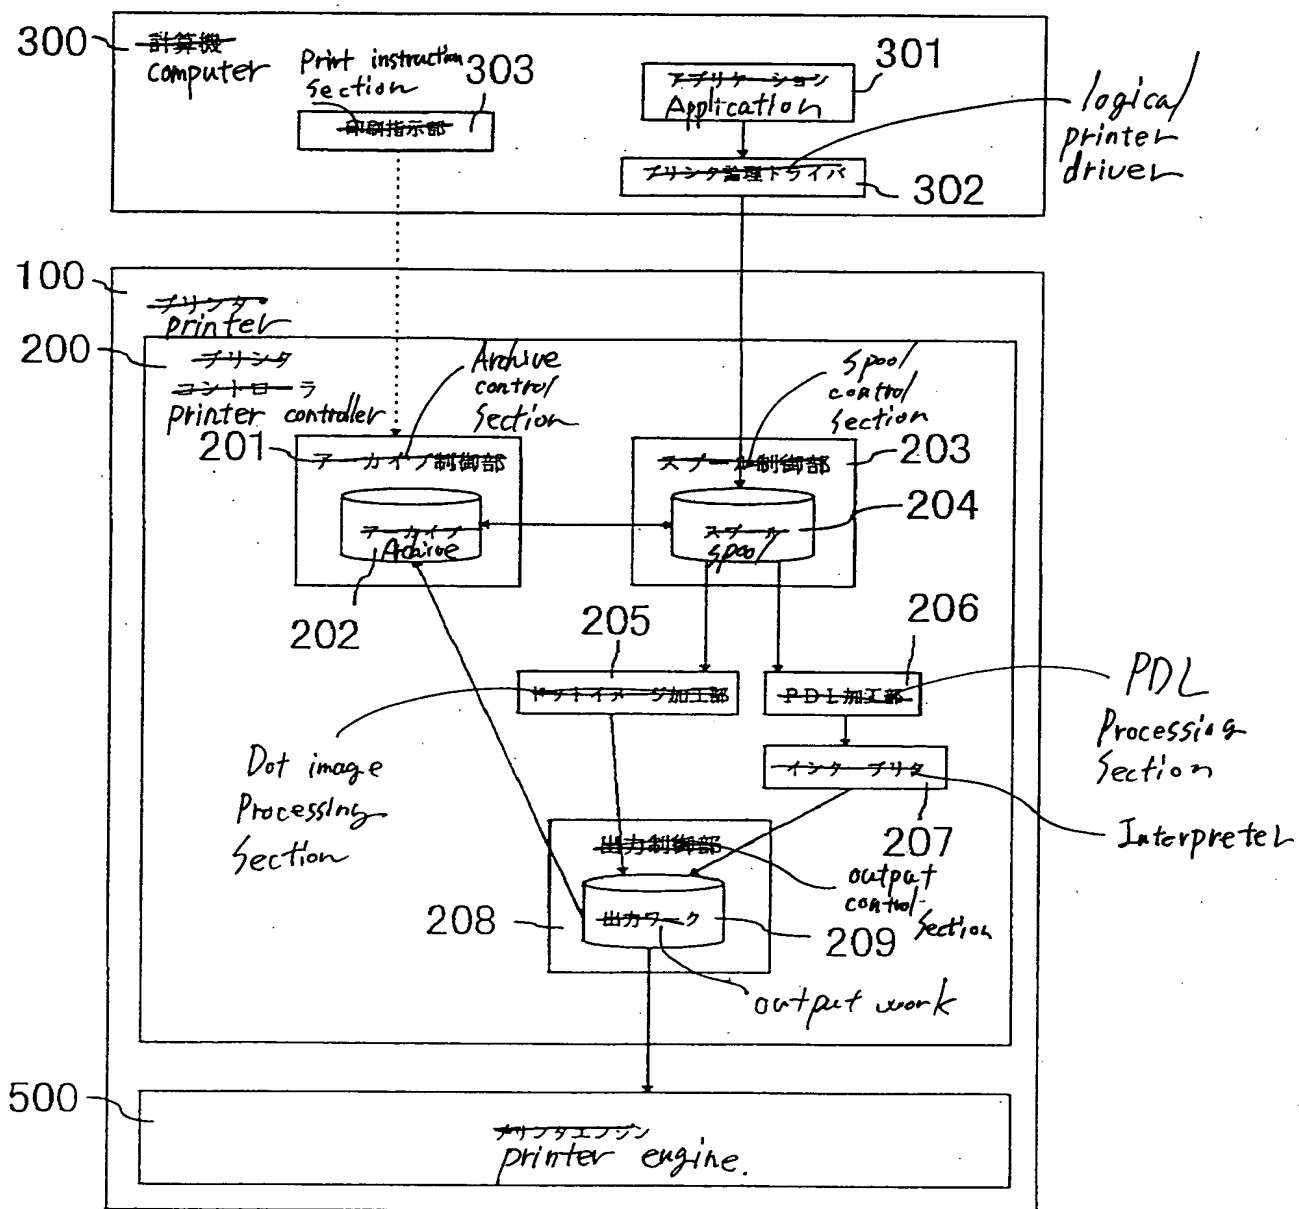 300
計算機
computer
Print instruction
section
303
印刷指示部
301
アプリケーション
Application
logical
printer
driver
プリンタ論理ドライバ
302
100
プリンタ
printer
200
プリンタ
コントローラ
printer controller
Archive
control
section
spool
control
section
201
アーカイブ制御部
スプール制御部
203
アーカイブ
Archive
スプール
spool
204
202
205
206
ドットイメージ加工部
PDL加工部
PDL
Processing
Section
Dot image
Processing
Section
インタープリタ
207
Interpreter
出力制御部
output
control
section
208
出力ワーク
209
output work
500
プリンタエンジン
printer engine.